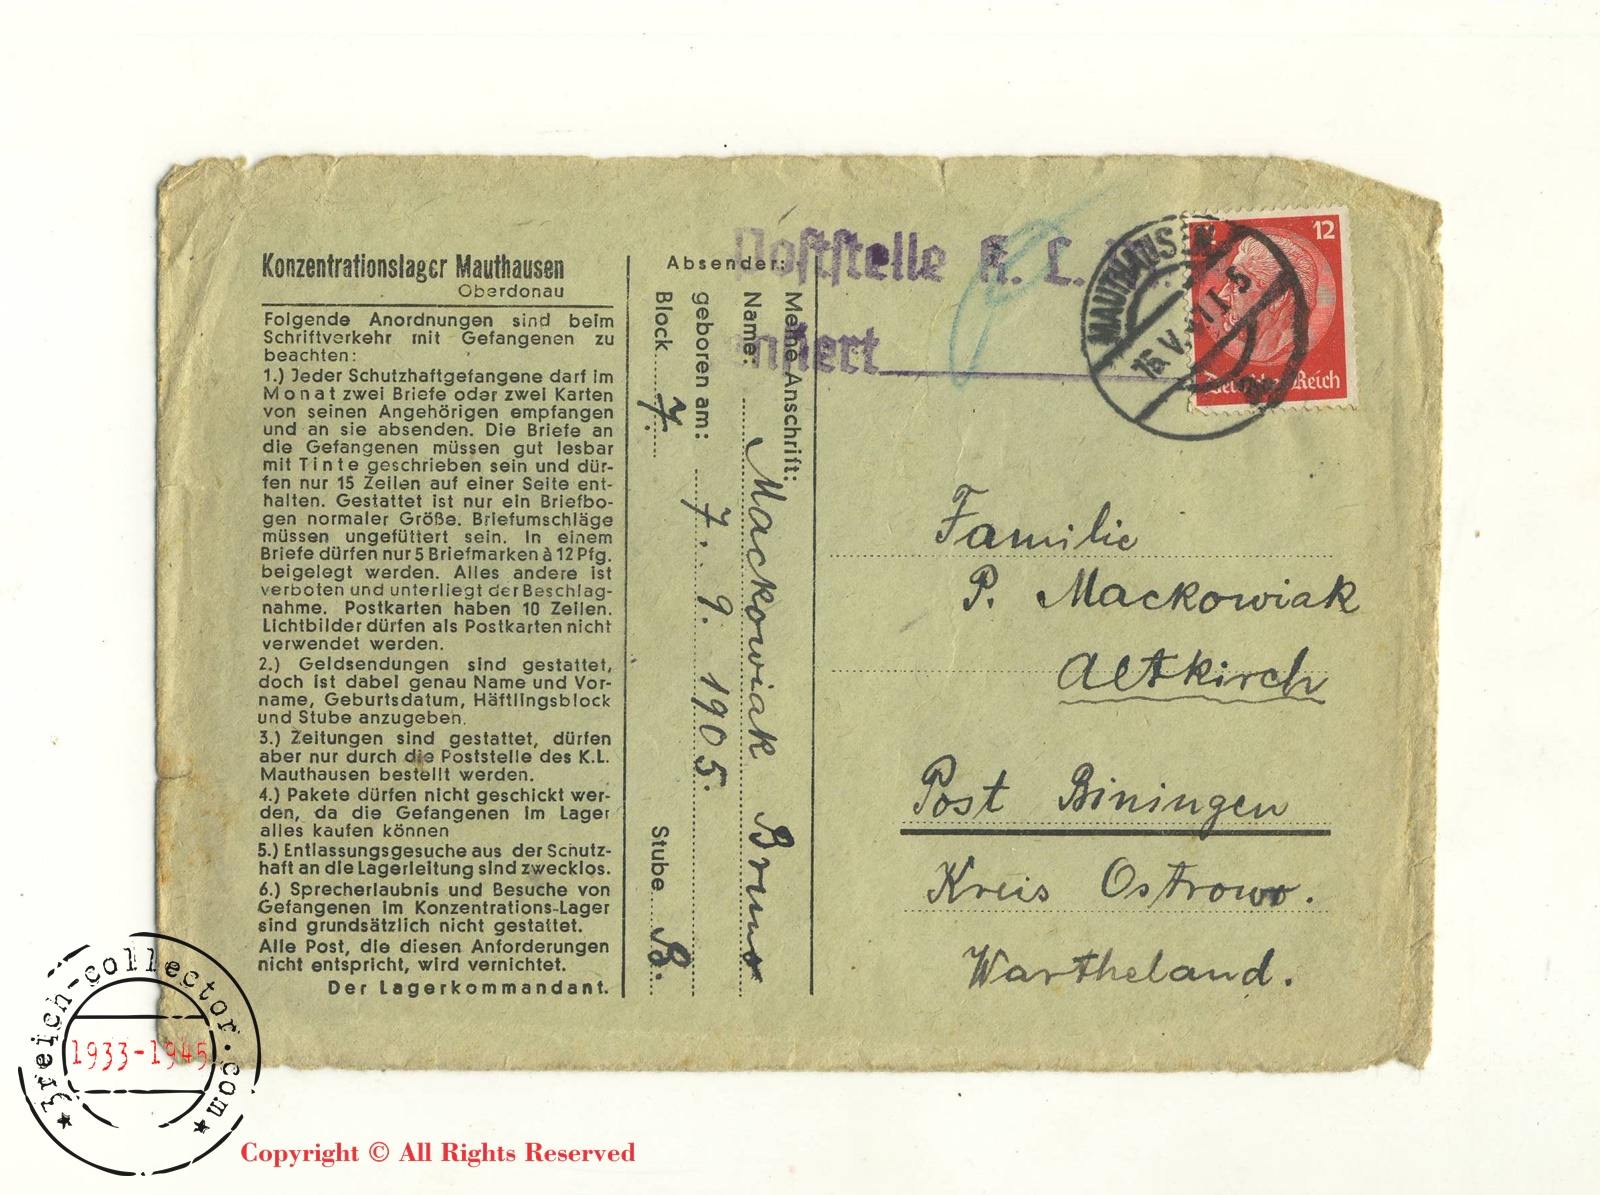 Konzentrationslager Mauthausen
Oberdonau
Folgende Anordnungen sind beim
Schriftverkehr mit Gefangenen zu
beachten:
1.) Jeder Schutzhaftgefangene darf im
Monat zwei Briefe oder zwei Karten
von seinen Angehörigen empfangen
und an sie absenden. Die Briefe an
die Gefangenen müssen gut lesbar
mit Tinte geschrieben sein und dür-
fen nur 15 Zeilen auf einer Seite ent-
halten. Gestattet ist nur ein Briefbo-
gen normaler Größe. Briefumschläge
müssen ungefüttert sein. In einem
Briefe dürfen nur 5 Briefmarken à 12 Pfg.
beigelegt werden. Alles andere ist
verboten und unterliegt der Beschlag-
nahme. Postkarten haben 10 Zeilen.
Lichtbilder dürfen als Postkarten nicht
verwendet werden.
2.) Geldsendungen sind gestattet,
doch ist dabei genau Name und Vor-
name, Geburtsdatum, Häftlingsblock
und Stube anzugeben.
3.) Zeitungen sind gestattet, dürfen
aber nur durch die Poststelle des K.L.
Mauthausen bestellt werden.
4.) Pakete dürfen nicht geschickt wer-
den, da die Gefangenen im Lager
alles kaufen können
5.) Entlassungsgesuche aus der Schutz-
haft an die Lagerleitung sind zwecklos.
6.) Sprecherlaubnis und Besuche von
Gefangenen im Konzentrations-Lager
sind grundsätzlich nicht gestattet.
Alle Post, die diesen Anforderungen
nicht entspricht, wird vernichtet.
Der Lagerkommandant.
Absender:
Meine Anschrift:
Name: Mackowiak Bruno
geboren am: 7. 9. 1905.
Block 7. Stube B.
Poststelle K. L.
MAUTHAUSEN
12
Deutsches Reich
Familie
P. Mackowiak
Altkirch
Post Biningen
Kreis Ostrowo.
Wartheland.
3reich-collector.com
1933-1945
Copyright © All Rights Reserved